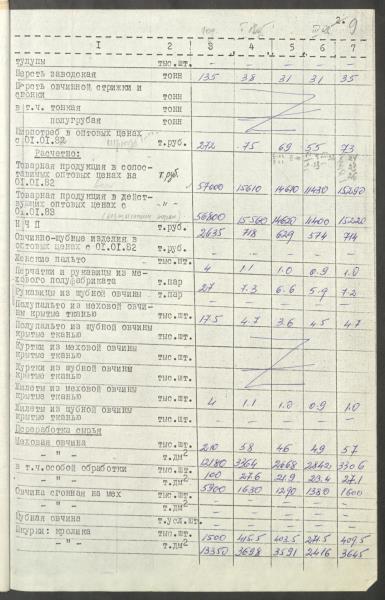 9
I 2 3 4 5 6 7
тулупы тыс.шт. - - - - -
Шерсть заводская тонн 135 38 31 31 35
Шерсть овчинной стрижки и
сгонки тонн
в т.ч. тонкая тонн
полугрубая тонн
Ширпотреб в оптовых ценах
с 01.01.82 т.руб. 272 75 69 55 73
Расчетно:
Товарная продукция в сопос-
тавимых оптовых ценах на т.руб.
01.01.82 57000 15610 14670 11430 15290
Товарная продукция в дейст-
вующих оптовых ценах с - " -
01.01.83 56800 15560 14620 11400 15220
Н Ч П т.руб. 2635 718 629 574 714
Овчинно-шубные изделия в
оптовых ценах с 01.01.82 т.руб. - - - - -
Женские пальто тыс.шт. - - - - -
Перчатки и рукавицы из ме-
хового полуфабриката т.пар 4 1.1 1.0 0.9 1.0
Рукавицы из шубной овчины т.пар 27 7.3 6.6 5.9 7.2
Полупальто из меховой овчи-
ны крытые тканью тыс.шт. - - - - -
Полупальто из шубной овчины
крытые тканью тыс.шт. 17.5 4.7 3.6 4.5 4.7
Куртки из меховой овчины
крытые тканью тыс.шт.
Куртки из шубной овчины
крытые тканью тыс.шт.
Жилеты из меховой овчины
крытые тканью тыс.шт.
Жилеты из шубной овчины
крытые тканью тыс.шт. 4 1.1 1.0 0.9 1.0
Переработка сырья
Меховая овчина тыс.шт. 210 58 46 49 57
- " - т.дм2 12180 3364 2668 2842 3306
в т.ч.особой обработки тыс.шт. 100 27.6 21.9 23.4 27.1
- " - т.дм2 5900 1630 1290 1380 1600
Овчина сгонная на мех тыс.шт. - - - - -
- " - т.дм2 - - - - -
Шубная овчина т.усл.шт. - - - - -
Шкурки: кролика тыс.шт. 1500 415.5 403.5 271.5 409.5
- " - т.дм2 13350 3698 3591 2416 3645